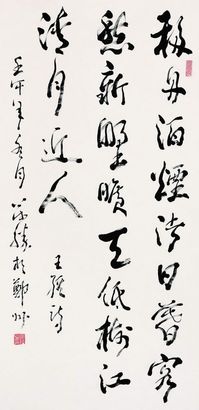 移舟泊煙渚日暮客
愁新野曠天低樹江
清月近人
詩
壬午年 月
於鄭州